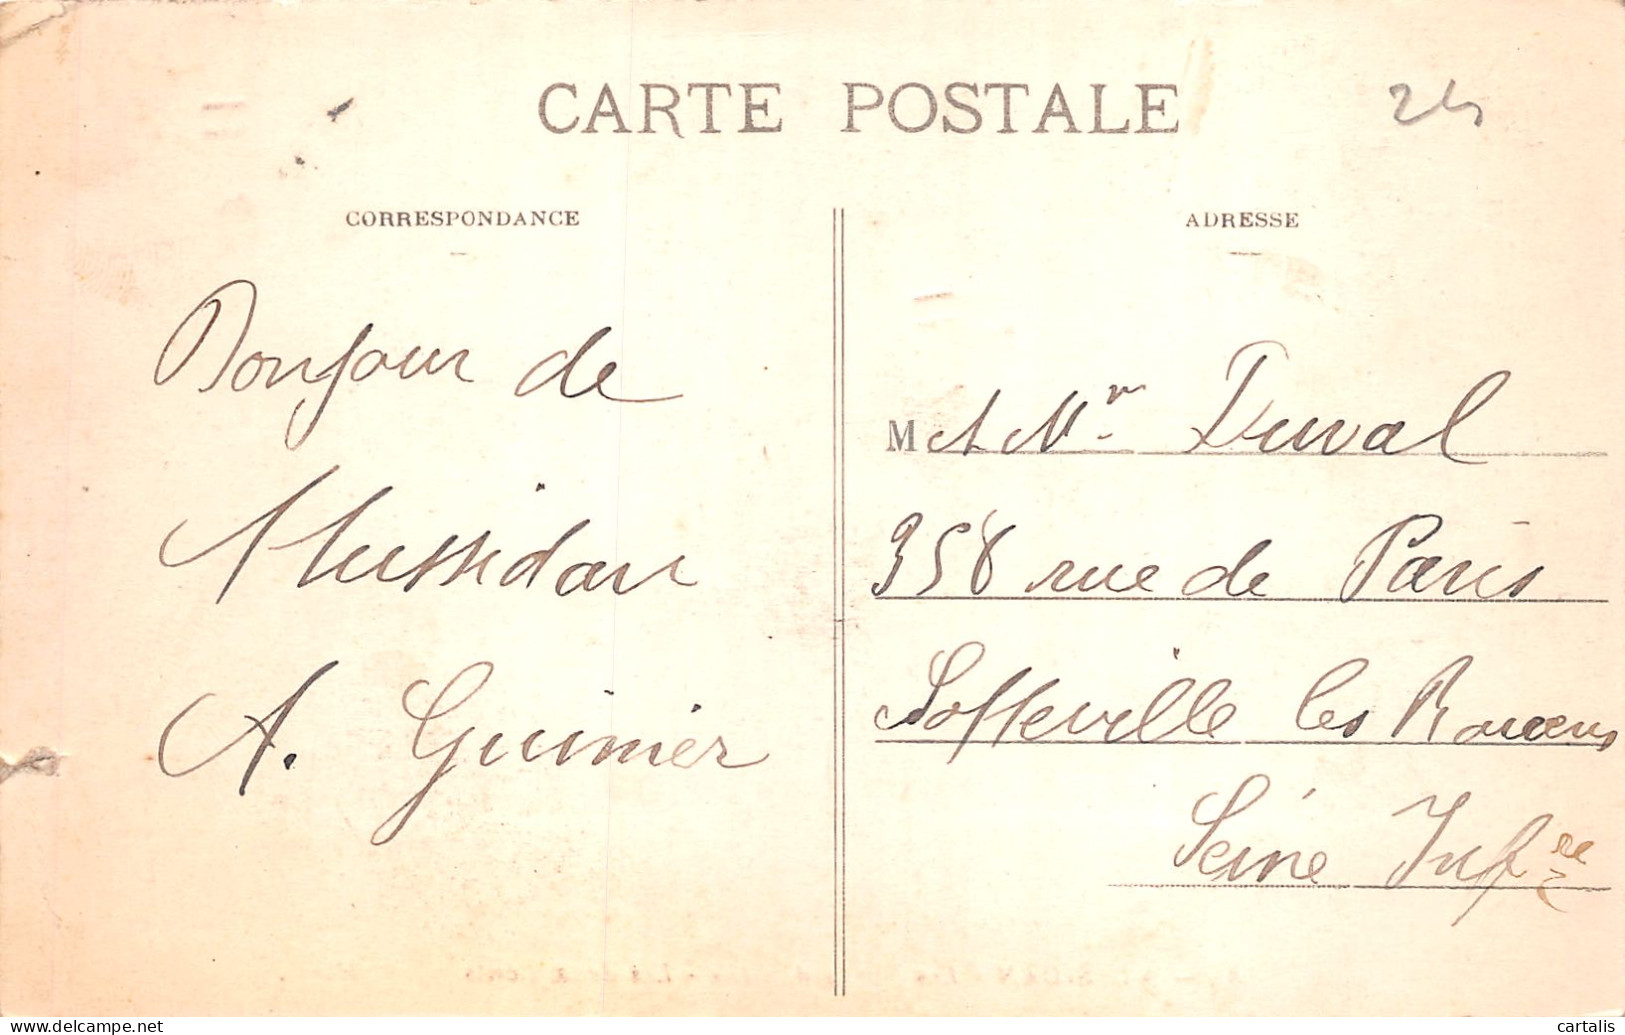 CARTE POSTALE
24
CORRESPONDANCE
ADRESSE
Bonjour de
Mussidan
A. Guimier
M et Mme Duval
358 rue de Paris
Sotteville les Rouens
Seine Infre
www.delcampe.net
cartalis